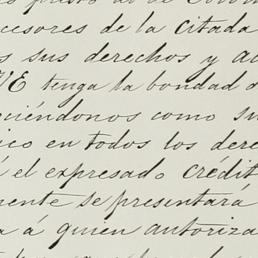 cesores de la citada
s sus derechos y ac
VE tenga la bondad d
ciéndonos como su
ico en todos los dere
á el expresado crédit
mente se presentará
a á quien autoriza